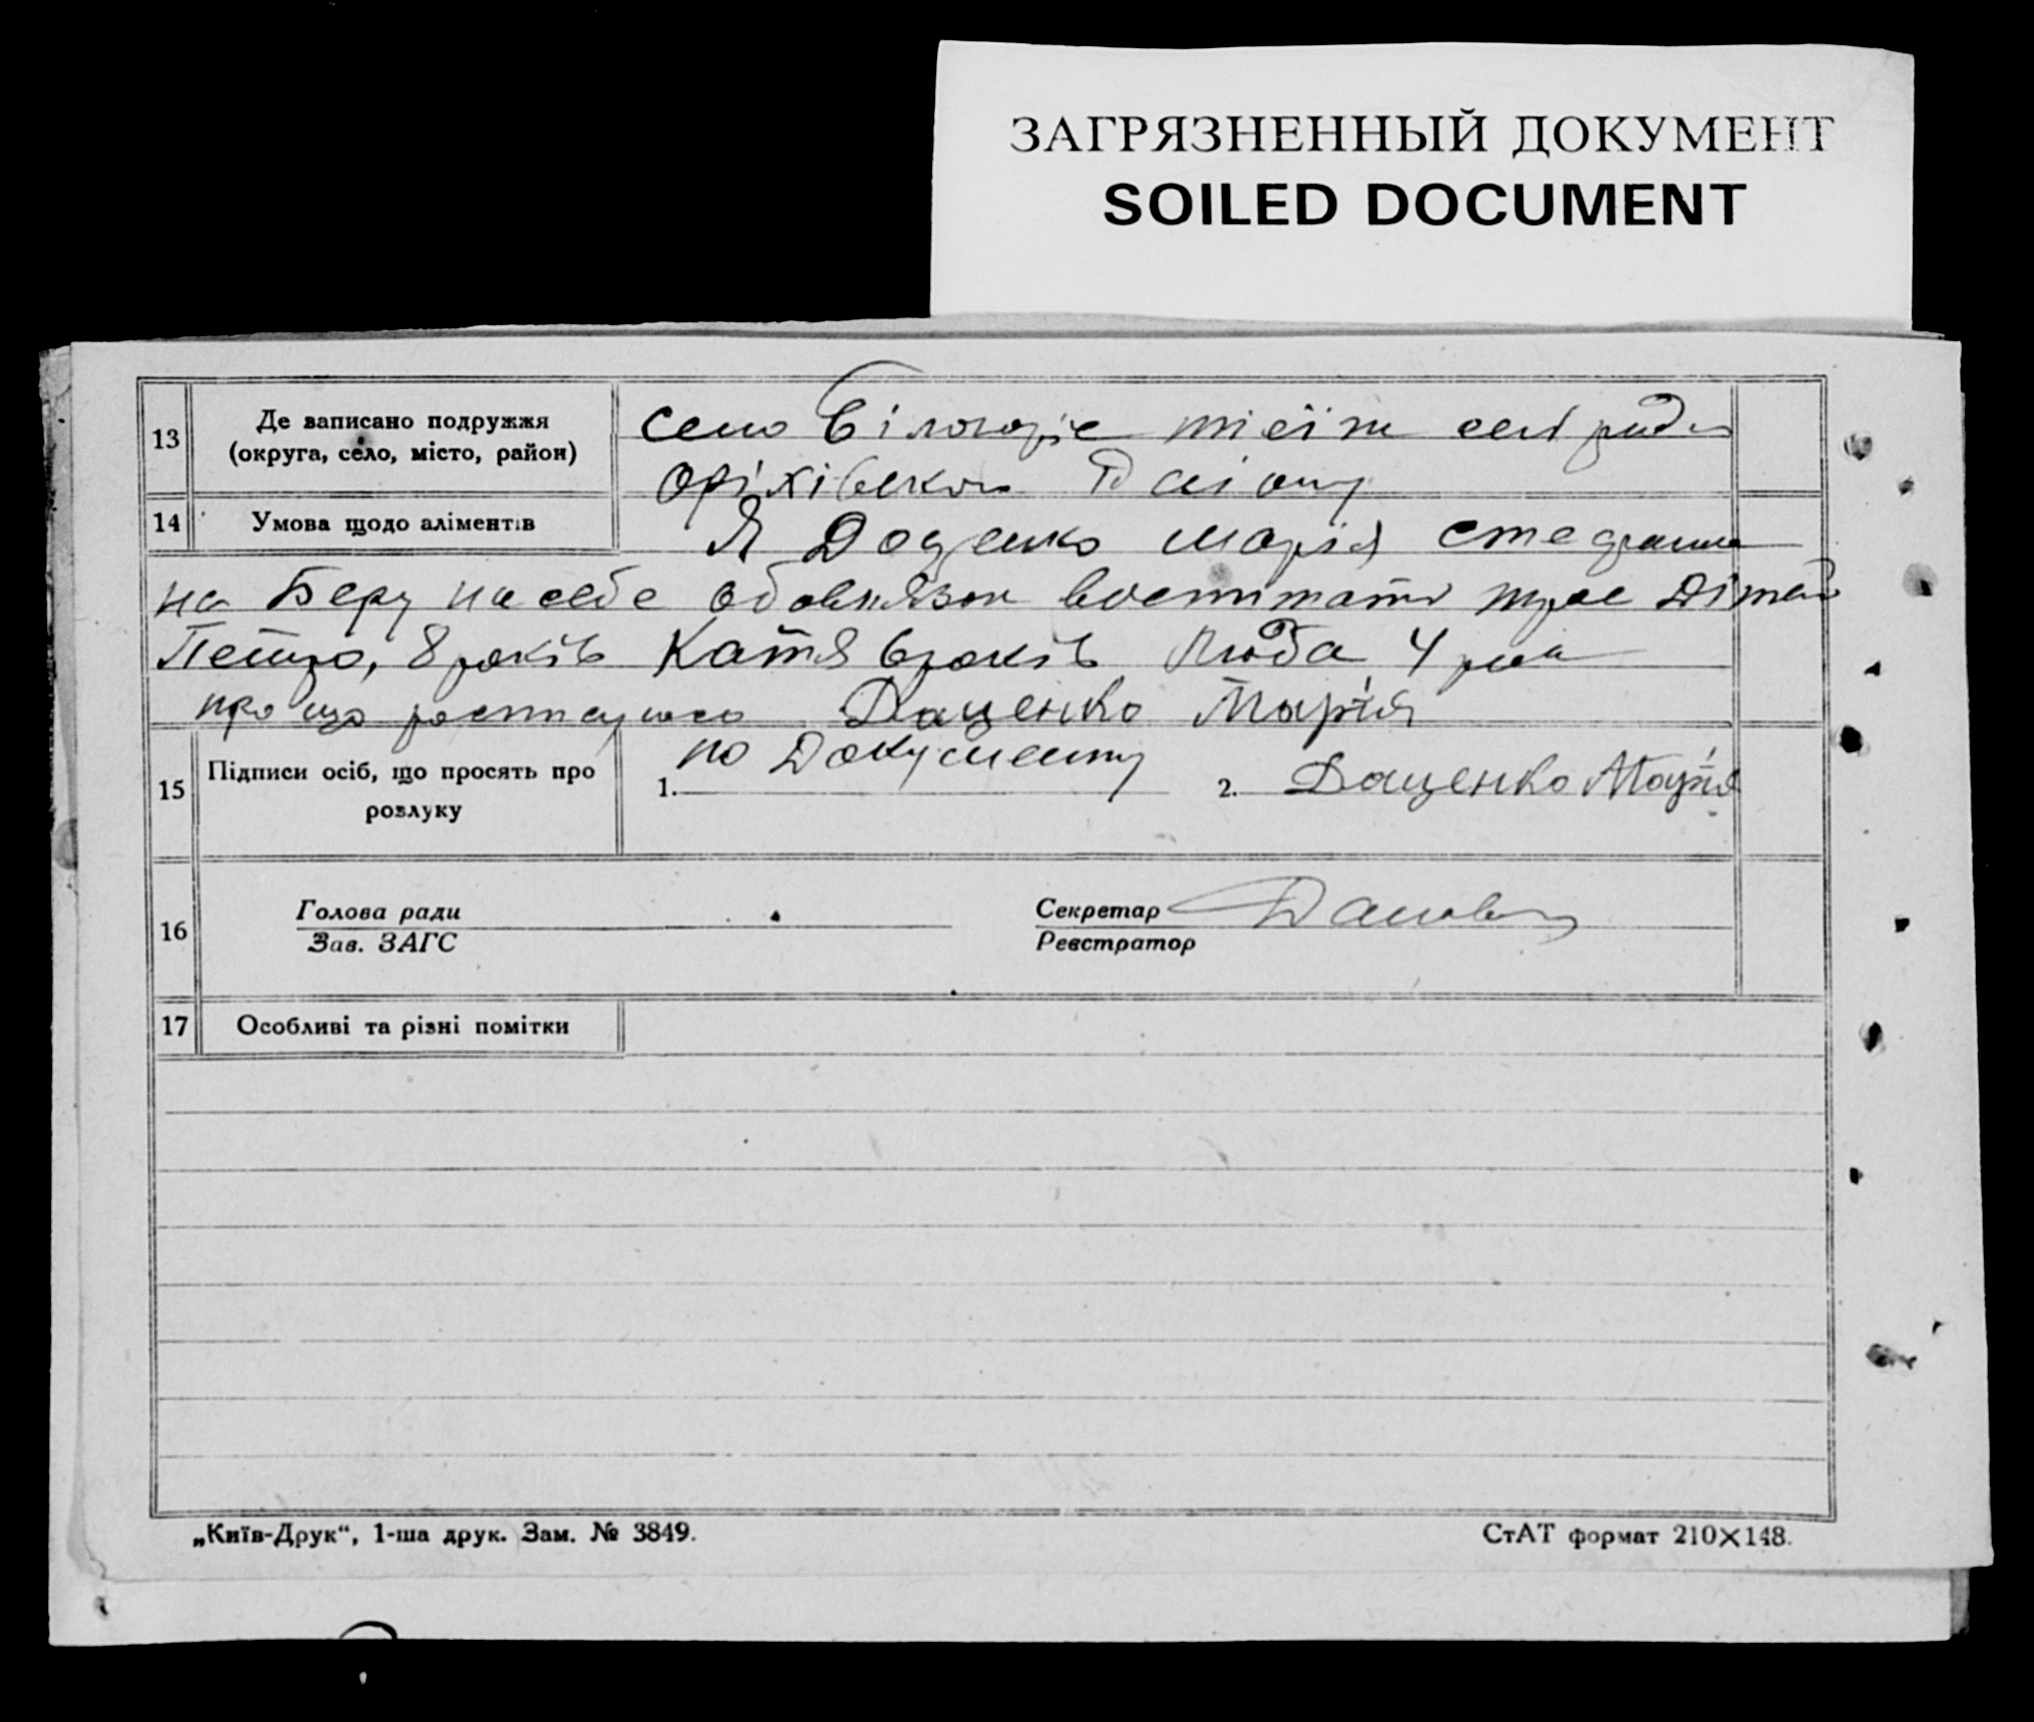 ЗАГРЯЗНЕННЫЙ ДОКУМЕНТ
SOILED DOCUMENT
13 Де записано подружжя
(округа, село, місто, район)
село Білогоріє тієїж сел ради
Оріхівского Раіону
14 Умова щодо аліментів
Я Доценко Марія
на Беру на себе обовязок воспитати трое Дітей
Петро, 8 років Катя 6 років Люба 4 рока
про що росписуюсь Даценко Марія
15 Підписи осіб, що просять про
розлуку
1. по Документу 2. Даценко Марія
16 Голова ради
Зав. ЗАГС
Секретар
Реєстратор
17 Особливі та різні помітки
„Київ-Друк“, 1-ша друк. Зам. № 3849. СтАТ формат 210×148.